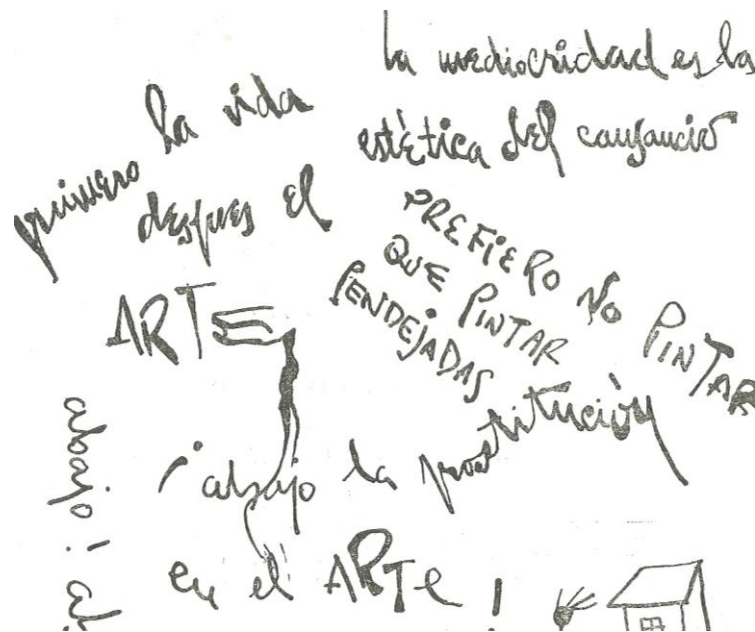 la mediocridad es la
estética del cansancio
primero la vida
despues el
ARTE
PREFIERO NO PINTAR
QUE PINTAR
PENDEJADAS
¡abajo la prostitución
en el ARTe!
abajo!